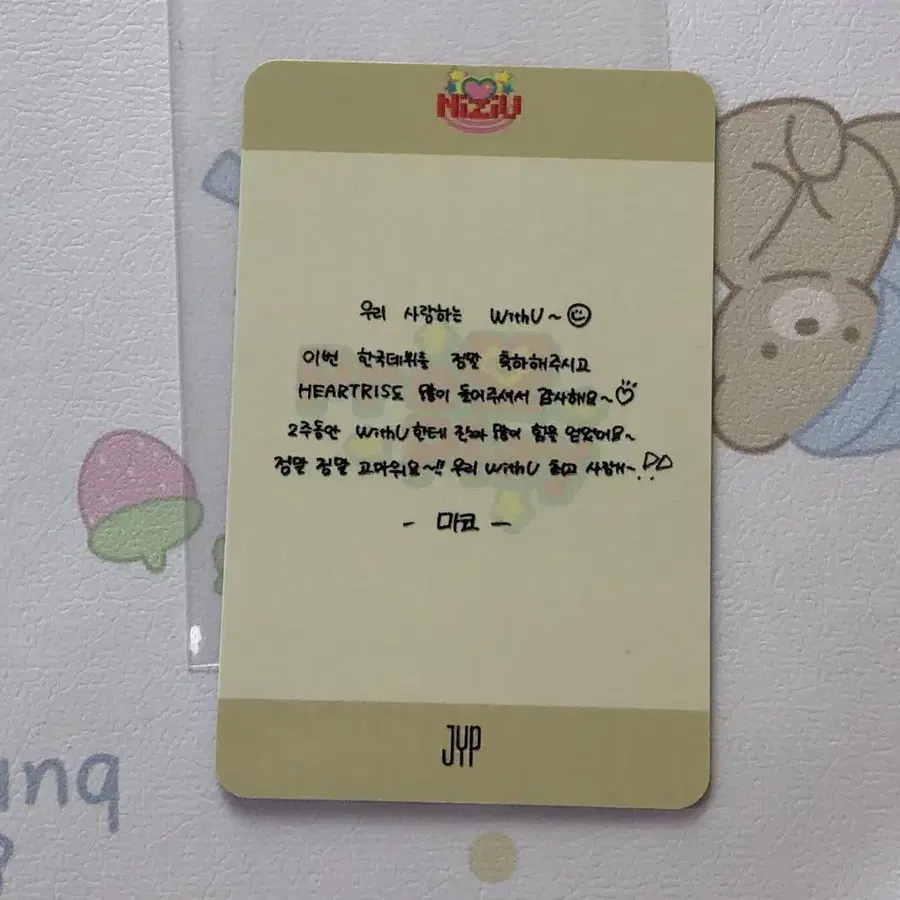 NiziU
우리 사랑하는 WithU~
이번 한국데뷔를 정말 축하해주시고
HEARTRIS도 많이 들어주셔서 감사해요~
2주동안 WithU한테 진짜 많이 힘을 얻었어요~
정말 정말 고마워요~!! 우리 WithU 최고 사랑해~
- 마코 -
JYP